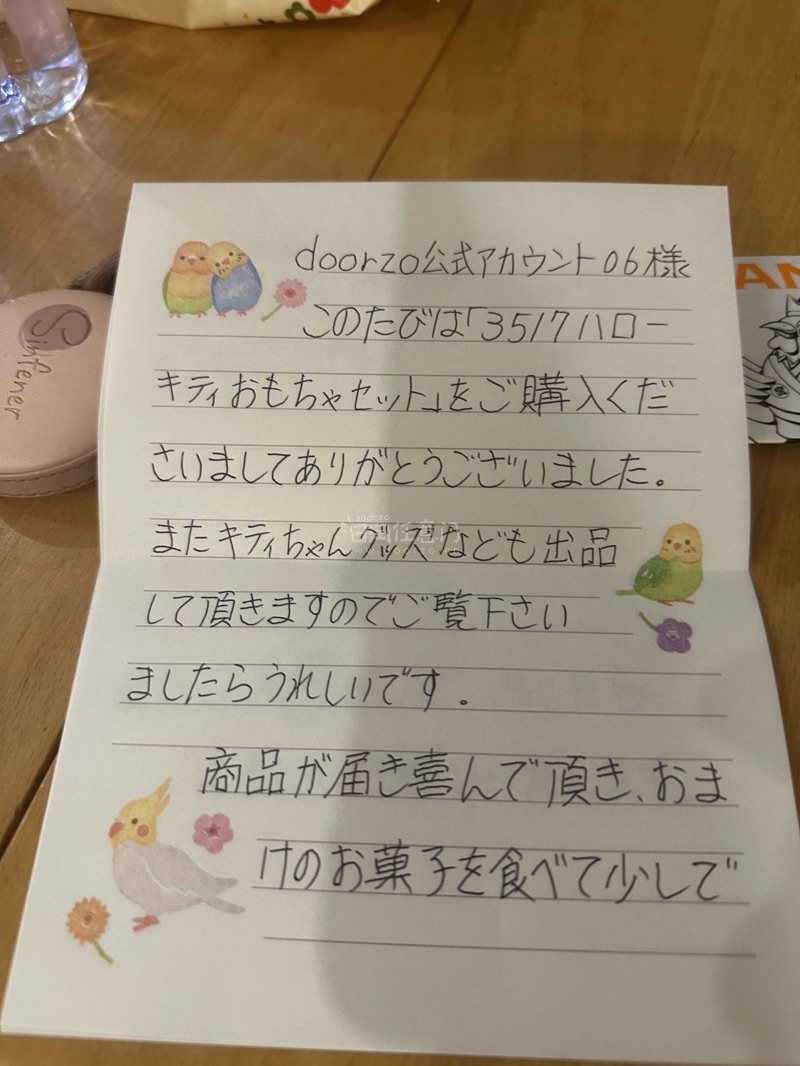 doorzo公式アカウント06様
このたびは「3517ハロー
キティおもちゃセット」をご購入くだ
さいましてありがとうございました。
またキティちゃんグッズなども出品
して頂きますのでご覧下さい
ましたらうれしいです。
商品が届き喜んで頂き、おま
けのお菓子を食べて少しで
Sinfener
AN